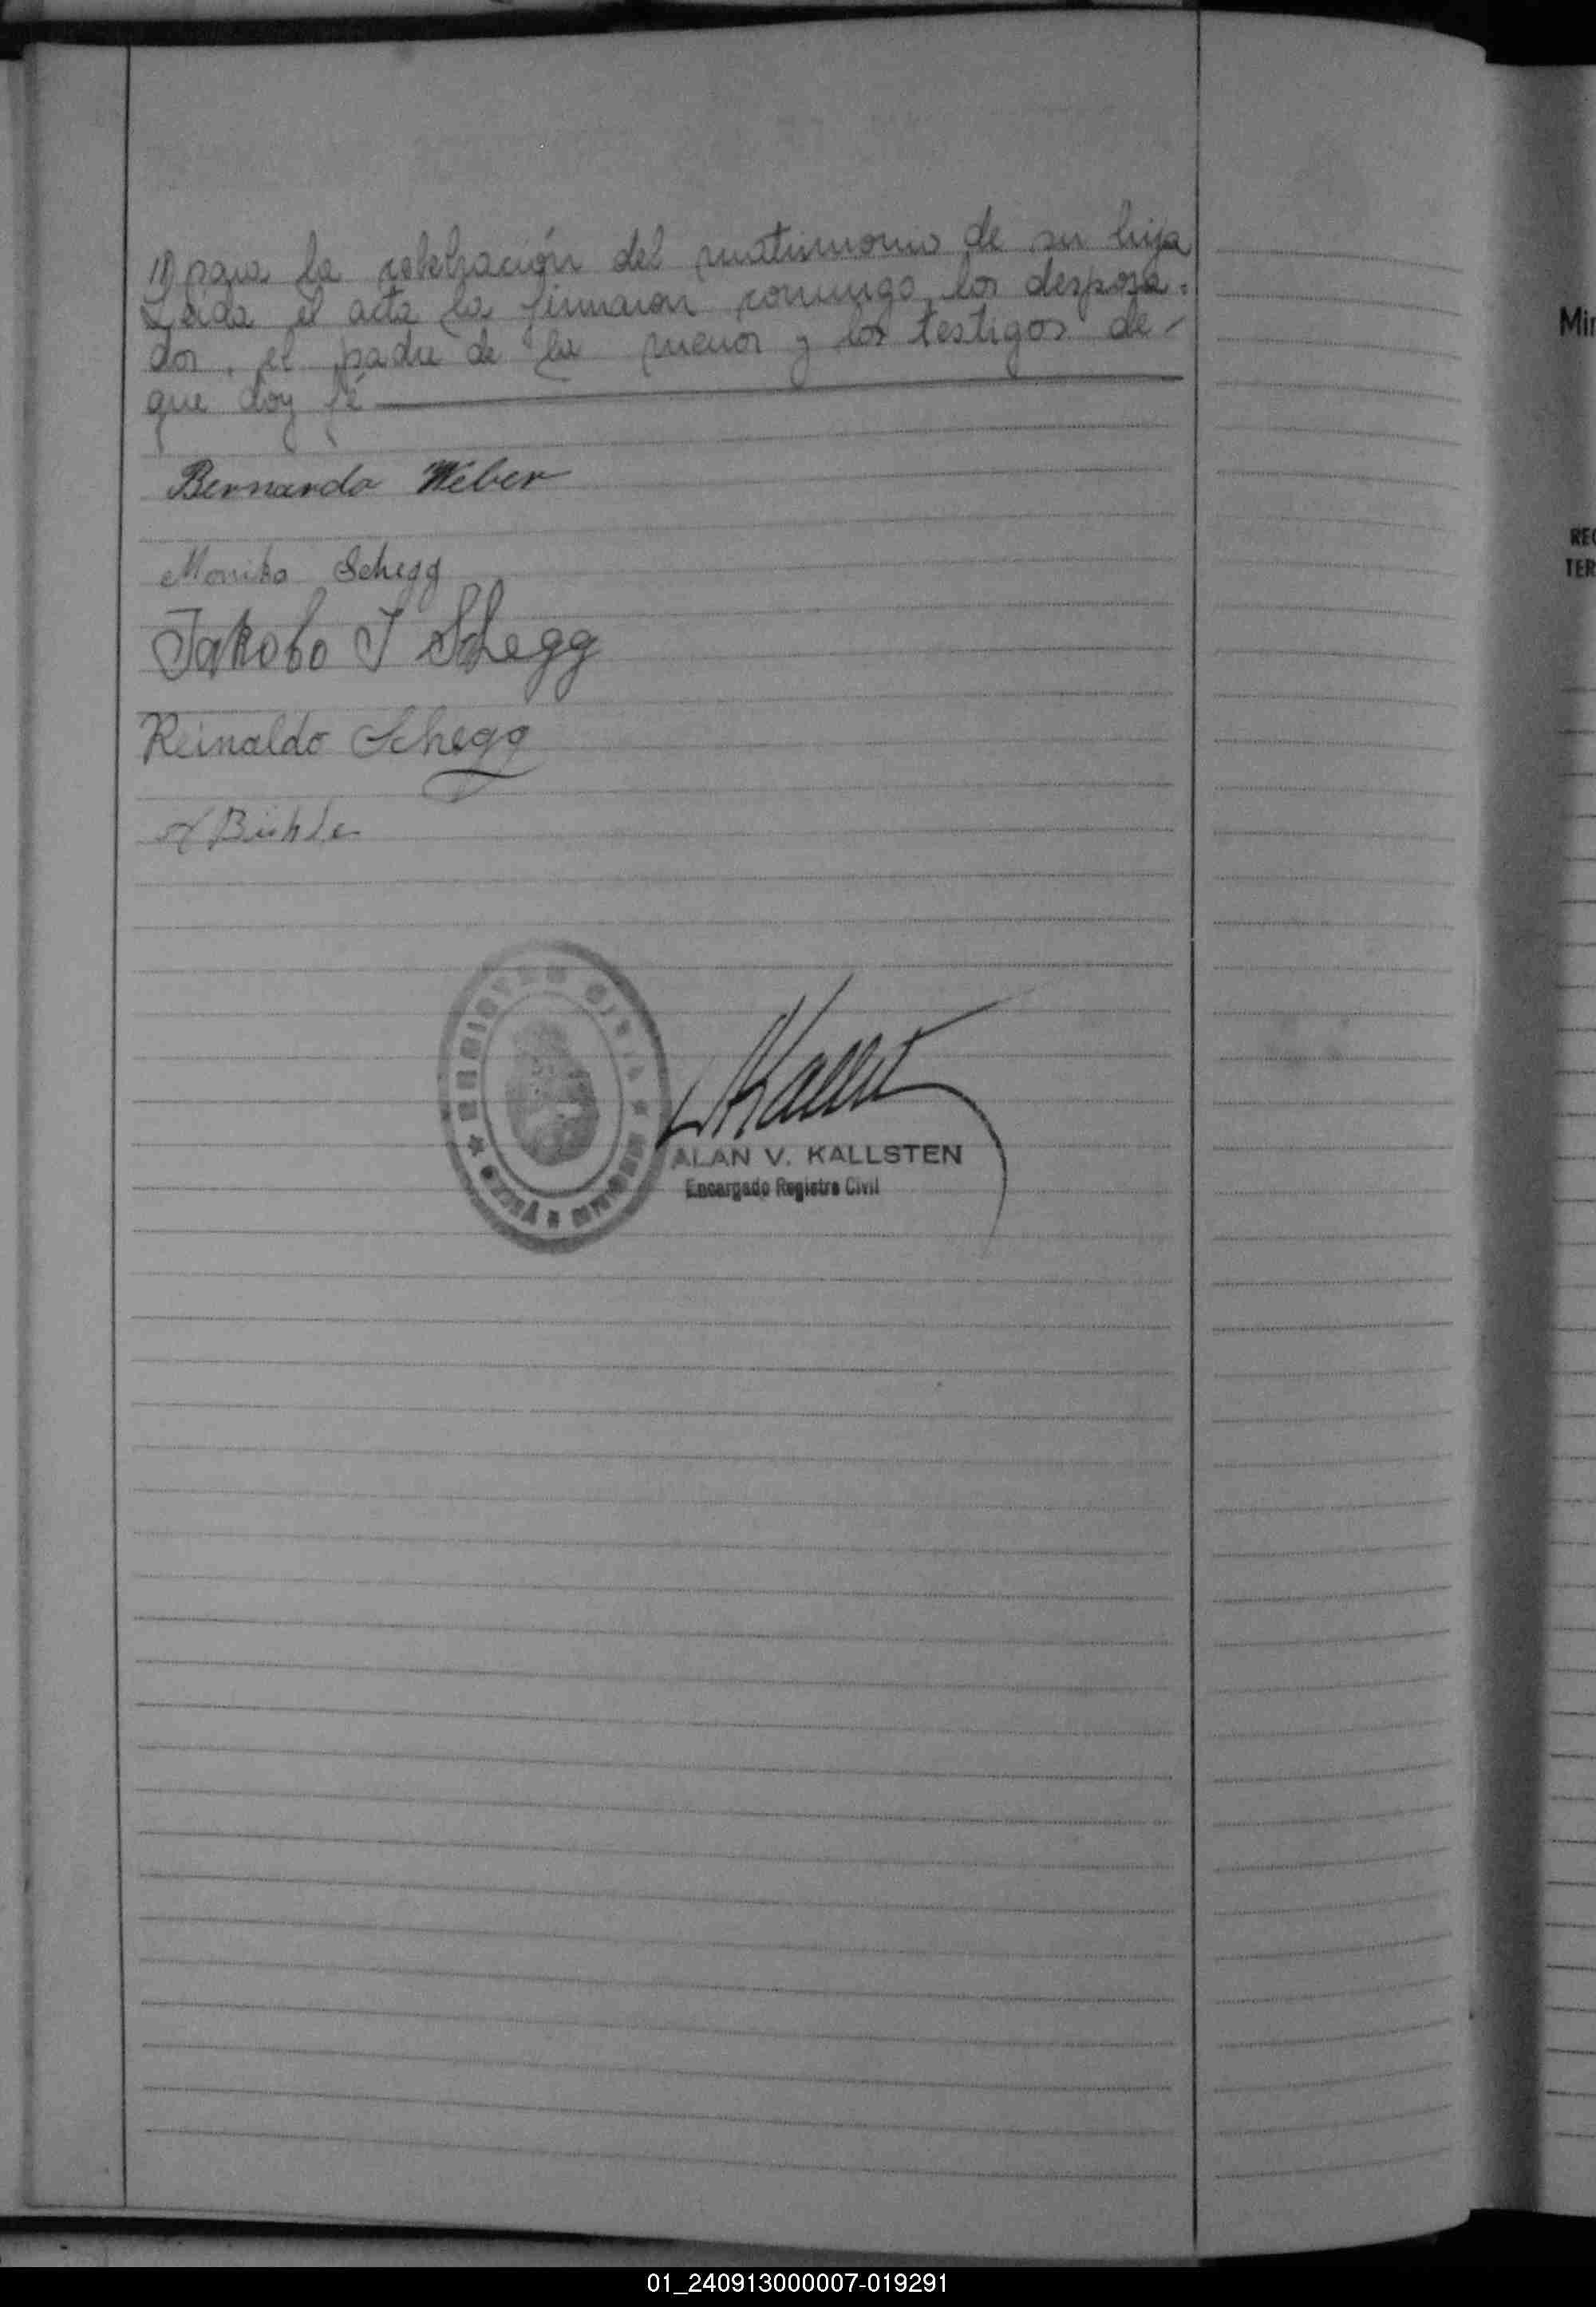 1) para la celebración del matrimonio de su hija
Leída el acta la firmaron conmigo, los desposa-
dos, el padre de la menor y los testigos de
que doy fé
Bernardo Weber
Monika Schegg
Jakobo J Schegg
Reinaldo Schegg
Bühle
REGISTRO CIVIL
ALAN V. KALLSTEN
Encargado Registro Civil
Min
REG
TER
01_240913000007-019291